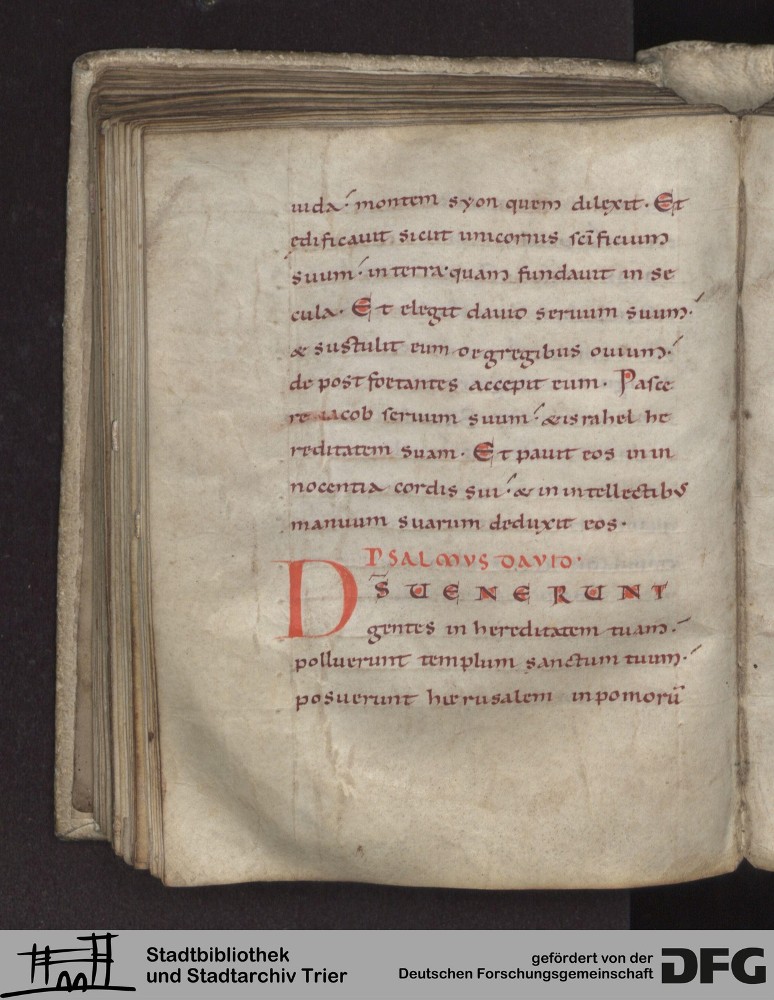 iuda· montem syon quem dilexit· Et
edificauit sicut unicornus sc̄ificium
suum· in terra quam fundauit in se
cula· Et elegit dauid seruum suum·
& sustulit eum degregibus ouium·
de post foetantes accepit eum· Pasce
re iacob seruum suum· & israhel he
reditatem suam· Et pauit eos in in
nocentia cordis sui· & in intellectibꝰ
manuum suarum deduxit eos·
PSALMVS DAVID·
DS̄ UENERUNT
gentes in hereditatem tuam·
polluerunt templum sanctum tuum·
posuerunt hierusalem inpomorū
Stadtbibliothek
und Stadtarchiv Trier
gefördert von der
Deutschen Forschungsgemeinschaft
DFG